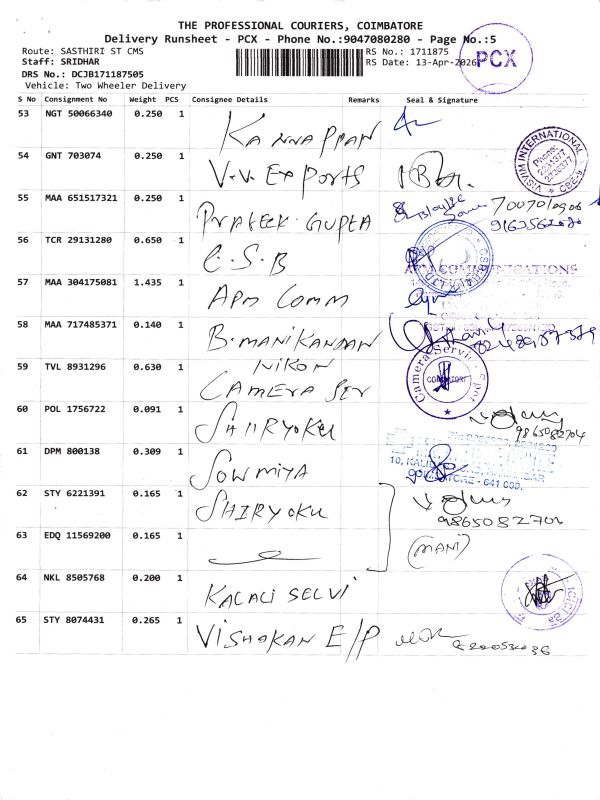 THE PROFESSIONAL COURIERS, COIMBATORE
Delivery Runsheet - PCX - Phone No.:9047080280 - Page No.:5
Route: SASTHIRI ST CMS
RS No.: 1711875
Staff: SRIDHAR
RS Date: 13-Apr-2026
PCX
DRS No.: DCJB171187505
Vehicle: Two Wheeler Delivery
S No Consignment No Weight PCS Consignee Details Remarks Seal & Signature
53 NGT 50066340 0.250 1 KANNAPPAN
54 GNT 703074 0.250 1 V.V. EXPORTS
VISVIM INTERNATIONAL
Phone:
CBE-9
55 MAA 651517321 0.250 1 PRATEEK GUPTA
56 TCR 29131280 0.650 1 C.S.B
57 MAA 304175081 1.435 1 APM COMM
COMMUNICATIONS
58 MAA 717485371 0.140 1 B.MANIKANDAN
59 TVL 8931296 0.630 1 NIKON
CAMERA SER
Camera Service
COIMBATORE
60 POL 1756722 0.091 1 SHIRYOKU
9865082704
61 DPM 800138 0.309 1 SOWMIYA
COIMBATORE - 641 009.
62 STY 6221391 0.165 1 SHIRYOKU
9865082704
63 EDQ 11569200 0.165 1
(MANI)
64 NKL 8505768 0.200 1 KALAI SELVI
65 STY 8074431 0.265 1 VISHAKAN E/P